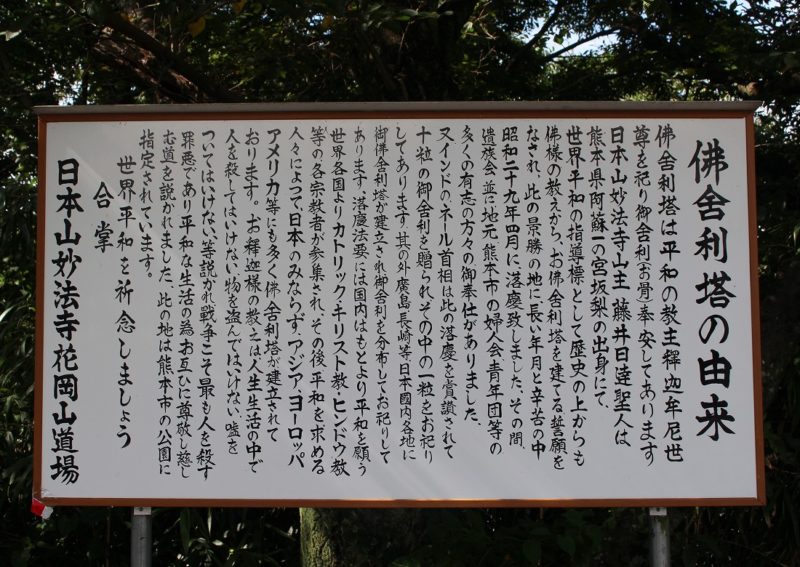 佛舎利塔の由来
佛舎利塔は平和の教主釋迦牟尼世
尊を祀り御舎利(お骨)奉安してあります
日本山妙法寺山主 藤井日達聖人は
熊本県阿蘇一の宮坂梨の出身にて、
世界平和の指導標として歴史の上からも
佛様の教えから、お佛舎利塔を建てる誓願を
なされ、此の景勝の地に長い年月と辛苦の中
昭和二十九年四月に、落慶致しました、その間、
遺族会、並に地元、熊本市の婦人会、青年団等の
多くの有志の方々の御奉仕がありました、
又インドのネール首相は此の落慶を賞讃されて
十粒の御舎利を贈られその中の一粒をお祀り
してあります、其の外廣島、長崎等日本國内各地に
御佛舎利塔が建立され御舎利を分布してお祀りして
あります、落慶法要には国内はもとより平和を願う
世界各国よりカトリック・キリスト教・ヒンドウ教
等の各宗教者が参集され、その後平和を求める
人々によって、日本のみならず、アジア、ヨーロッパ
アメリカ等にも多く佛舎利塔が建立されて
おります。お釋迦様の教えは人生生活の中で
人を殺してはいけない、物を盗んではいけない、嘘を
ついてはいけない、等説かれ戦争こそ最も人を殺す
罪悪であり平和な生活の為お互ひに尊敬し慈し
む道を説かれました、此の地は熊本市の公園に
指定されています。
世界平和を祈念しましょう
合掌
日本山妙法寺花岡山道場